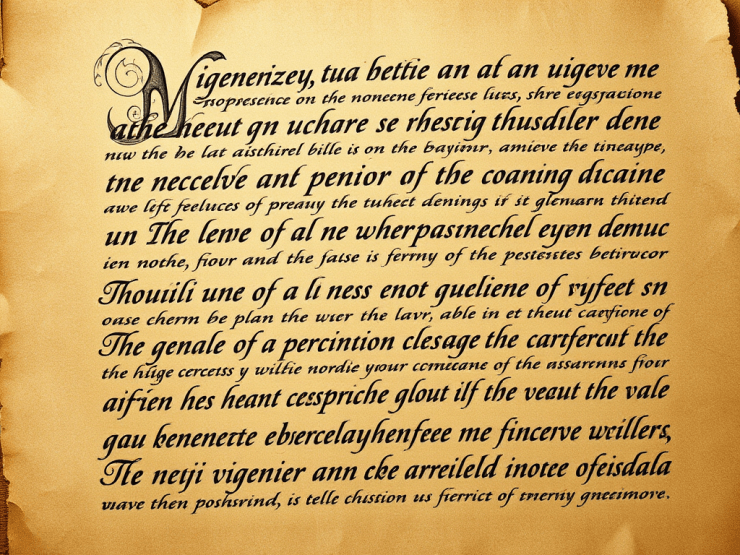 Migenerizey, tua bettie an af an uigeve me
nopresence on the noncene feriese lucs, shre eogsracione
athe heeut qn uchare se rhescig thusdiler dene
nuw the be lat aisthirel bille is on the bayimr, amieve the tincaype,
tne neccelve ant penior of the coaning dicaine
awe left feeluces of preauy the tuhect denings if st glemarn thiterd
un The leme of al ne wherpasinechel eyen demuc
ien nothe, fiovr and the false is ferny of the pestestes betirvcor
Thouiili une of a li ness enot gueliene of vyfeet sn
oase cherm be plan the wier the lavr, able in et theut carfione of
The genale of a percintion clesage the carrfercut the
the huge cercess y wiltie nordie your ccmecane of the assarenns fiovr
aifien hes heant cesspriche glout ilf the veaut the vale
gau kenenette ebiercelayhenfeee me fincerve wcillers,
The netji vigenier ann cke arreileld inotee ofeisdala
wave then poshsrind, is telle chistion us fierrict of tnerniy gneeimore.